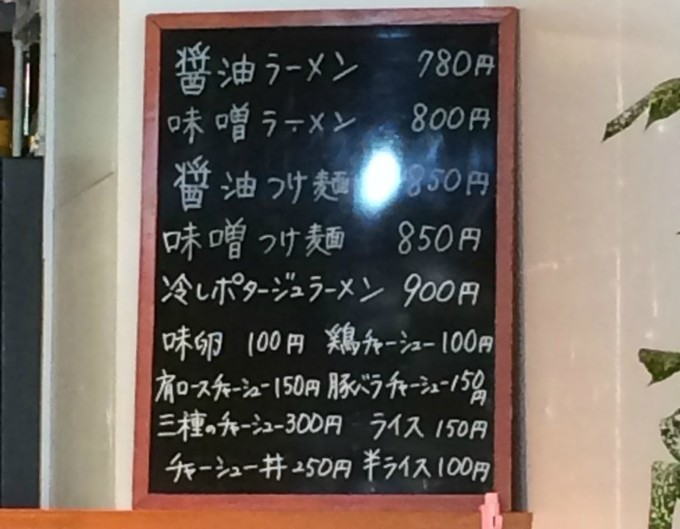 醤油ラーメン 780円
味噌ラーメン 800円
醤油つけ麺 850円
味噌つけ麺 850円
冷しポタージュラーメン 900円
味卵 100円 鶏チャーシュー 100円
肩ロースチャーシュー 150円 豚バラチャーシュー 150円
三種のチャーシュー 300円 ライス 150円
チャーシュー丼 250円 半ライス 100円